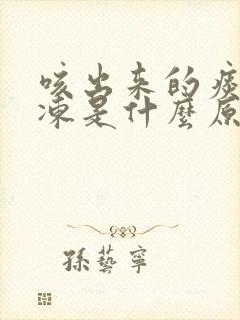 咳出来的痰
凍是什麼原
孫藝寧